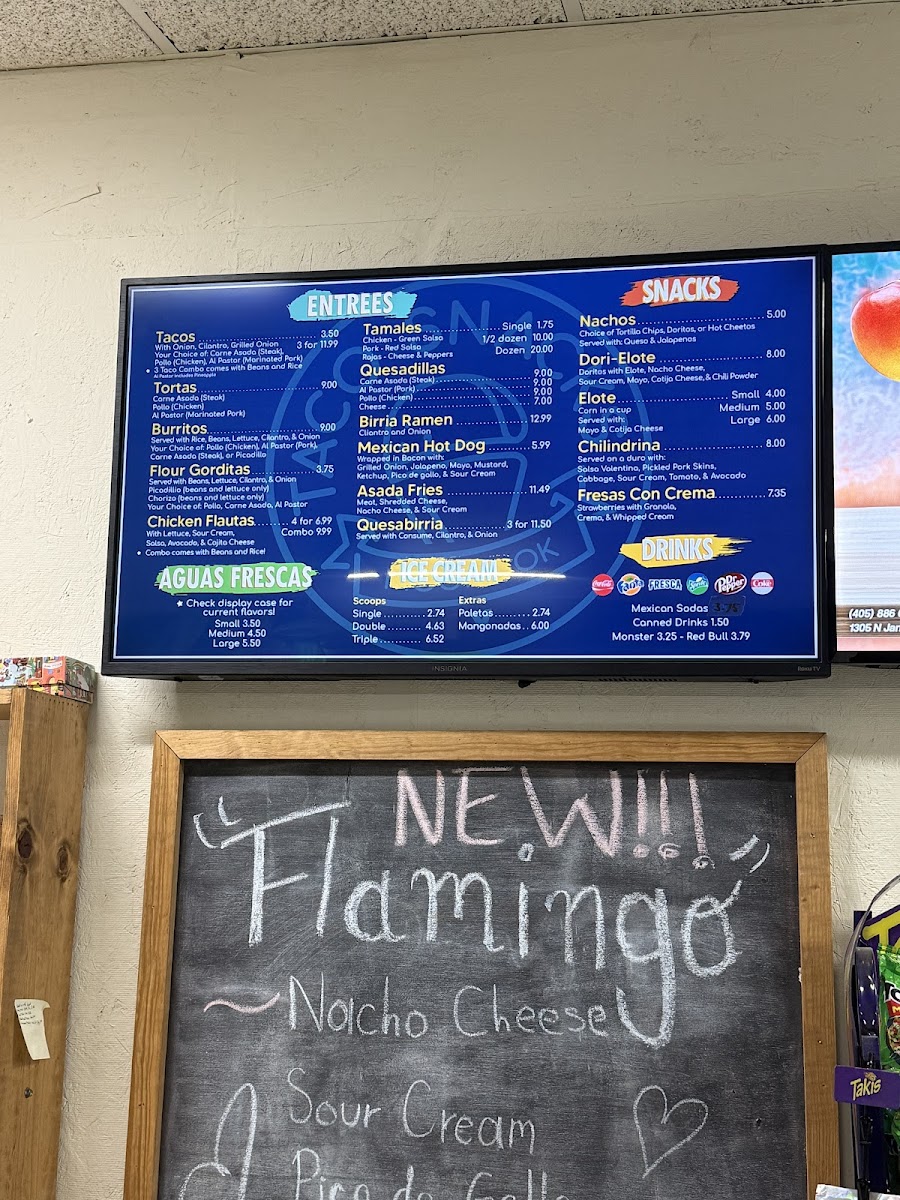 ENTREES
Tacos 3.50
With Onion, Cilantro, Grilled Onion 3 for 11.99
Your Choice of: Carne Asada (Steak),
Pollo (Chicken), Al Pastor (Marinated Pork)
• 3 Taco Combo comes with Beans and Rice
Al Pastor includes Pineapple
Tortas 9.00
Carne Asada (Steak)
Pollo (Chicken)
Al Pastor (Marinated Pork)
Burritos 9.00
Served with Rice, Beans, Lettuce, Cilantro, & Onion
Your Choice of: Pollo (Chicken), Al Pastor (Pork),
Carne Asada (Steak), or Picadillo
Flour Gorditas 3.75
Served with Beans, Lettuce, Cilantro, & Onion
Picadillio (beans and lettuce only)
Chorizo (beans and lettuce only)
Your Choice of: Pollo, Carne Asada, Al Pastor
Chicken Flautas 4 for 6.99
With Lettuce, Sour Cream, Combo 9.99
Salsa, Avocado, & Cojita Cheese
• Combo comes with Beans and Rice!
AGUAS FRESCAS
★ Check display case for
current flavors!
Small 3.50
Medium 4.50
Large 5.50
Tamales Single 1.75
Chicken - Green Salsa 1/2 dozen 10.00
Pork - Red Salsa Dozen 20.00
Rajas - Cheese & Peppers
Quesadillas 9.00
Carne Asada (Steak) 9.00
Al Pastor (Pork) 9.00
Pollo (Chicken)
Cheese 7.00
Birria Ramen 12.99
Cliantro and Onion
Mexican Hot Dog 5.99
Wrapped in Bacon with:
Grilled Onion, Jalapeno, Mayo, Mustard,
Ketchup, Pico de gallo, & Sour Cream
Asada Fries 11.49
Meat, Shredded Cheese,
Nacho Cheese, & Sour Cream
Quesabirria 3 for 11.50
Served with Consume, Cilantro, & Onion
ICE CREAM
Scoops
Single 2.74
Double 4.63
Triple 6.52
Extras
Paletas 2.74
Mangonadas 6.00
SNACKS
Nachos 5.00
Choice of Tortilla Chips, Doritos, or Hot Cheetos
Served with: Queso & Jalapenos
Dori-Elote 8.00
Doritos with Elote, Nacho Cheese,
Sour Cream, Mayo, Cotija Cheese, & Chili Powder
Elote Small 4.00
Corn in a cup Medium 5.00
Served with: Large 6.00
Mayo & Cotija Cheese
Chilindrina 8.00
Served on a duro with:
Salsa Valentina, Pickled Pork Skins,
Cabbage, Sour Cream, Tomato, & Avocado
Fresas Con Crema 7.35
Strawberries with Granola,
Crema, & Whipped Cream
DRINKS
FRESCA Dr Pepper Coke
Mexican Sodas 3.75
Canned Drinks 1.50
Monster 3.25 - Red Bull 3.79
INSIGNIA
Roku TV
(405) 886
1305 N Jan
NEW!!!
"Flamingo"
~ Nacho Cheese
Sour Cream
Pico de Gallo
Takis